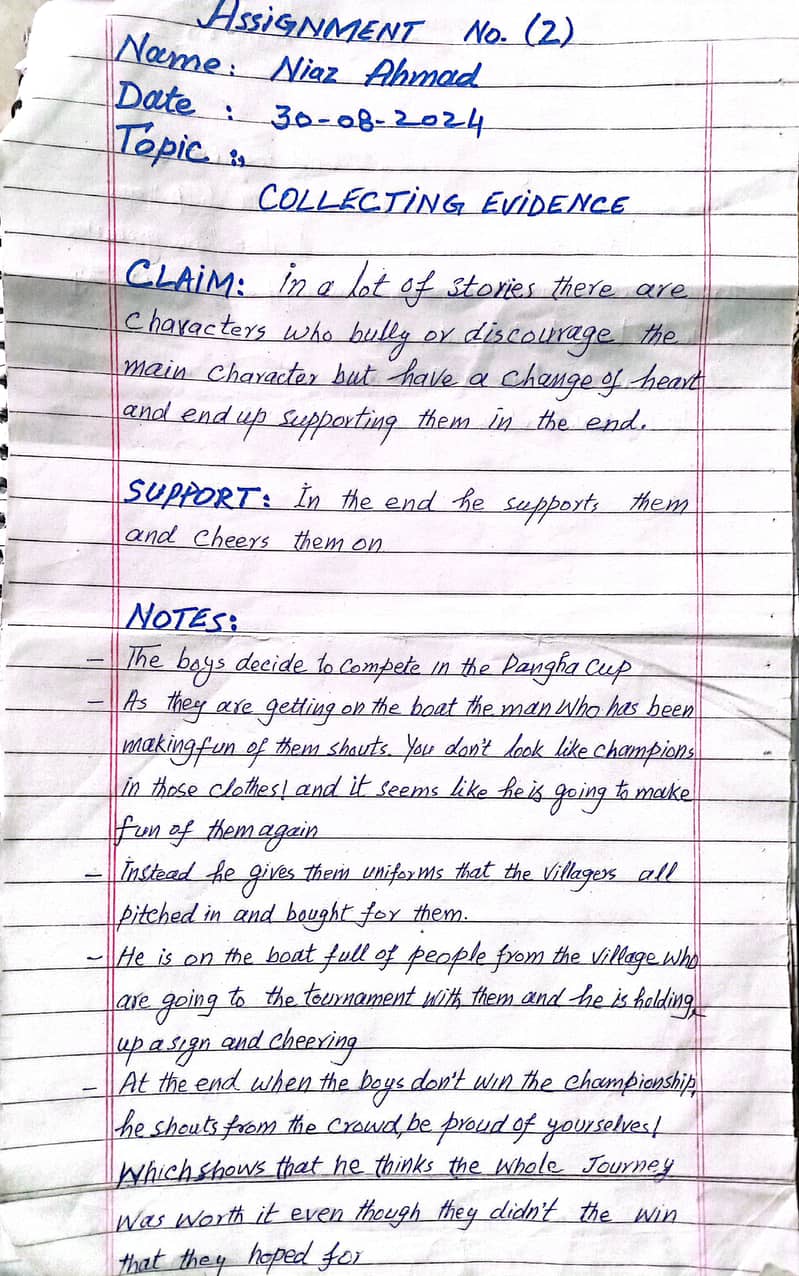 ASSIGNMENT No. (2)
Name: Niaz Ahmad
Date : 30-08-2024
Topic :,
COLLECTING EVIDENCE
CLAIM: in a lot of stories there are
characters who bully or discourage the
main character but have a change of heart
and end up supporting them in the end.
SUPPORT: In the end he supports them
and cheers them on
NOTES:
- The boys decide to compete in the Pangha Cup
- As they are getting on the boat the man who has been
making fun of them shouts. You don't look like champions
in those clothes! and it seems like he is going to make
fun of them again
- Instead he gives them uniforms that the villagers all
pitched in and bought for them.
- He is on the boat full of people from the village who
are going to the tournament with them and he is holding
up a sign and cheering
- At the end when the boys don't win the championship,
he shouts from the crowd, be proud of yourselves!
Which shows that he thinks the whole Journey
was worth it even though they didn't the win
that they hoped for